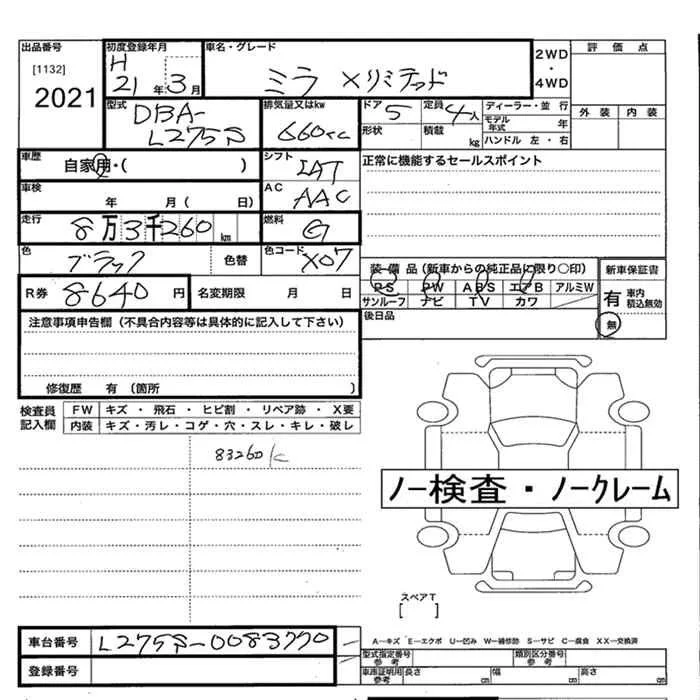 出品番号 初度登録年月 車名・グレード 2WD・4WD 評価点
[1132] H
2021 21年3月 ミラ Xリミテッド
外装 内装
型式 DBA-L275S 排気量又はkw 660cc ドア 5 定員 4人 ディーラー・並行
モデル年式 年
形状 積載 kg ハンドル 左・右
車歴 自家用・( ) シフト IAT 正常に機能するセールスポイント
車検 年 月( 日) AC AAC
走行 8万3千260km 燃料 G
色 ブラック 色替 色コード X07
装備品(新車からの純正品に限り○印) 新車保証書
PS PW ABS エアB アルミW
サンルーフ ナビ TV カワ
有 車内積込無効
無
R券 8640円 名変期限 月 日
後日品
注意事項申告欄(不具合内容等は具体的に記入して下さい)
修復歴 有(箇所 )
検査員記入欄 FW キズ・飛石・ヒビ割・リペア跡・X要
内装 キズ・汚レ・コゲ・穴・スレ・キレ・破レ
83260k
ノー検査・ノークレーム
スペアT
[ ]
車台番号 L275S-0083770
登録番号
A-キズ E-エクボ U-凹み W-補修跡 S-サビ C-腐食 XX-交換済
型式指定番号 参考 類別区分番号 参考
車庫証明用 参考 長さ cm 幅 cm 高さ cm